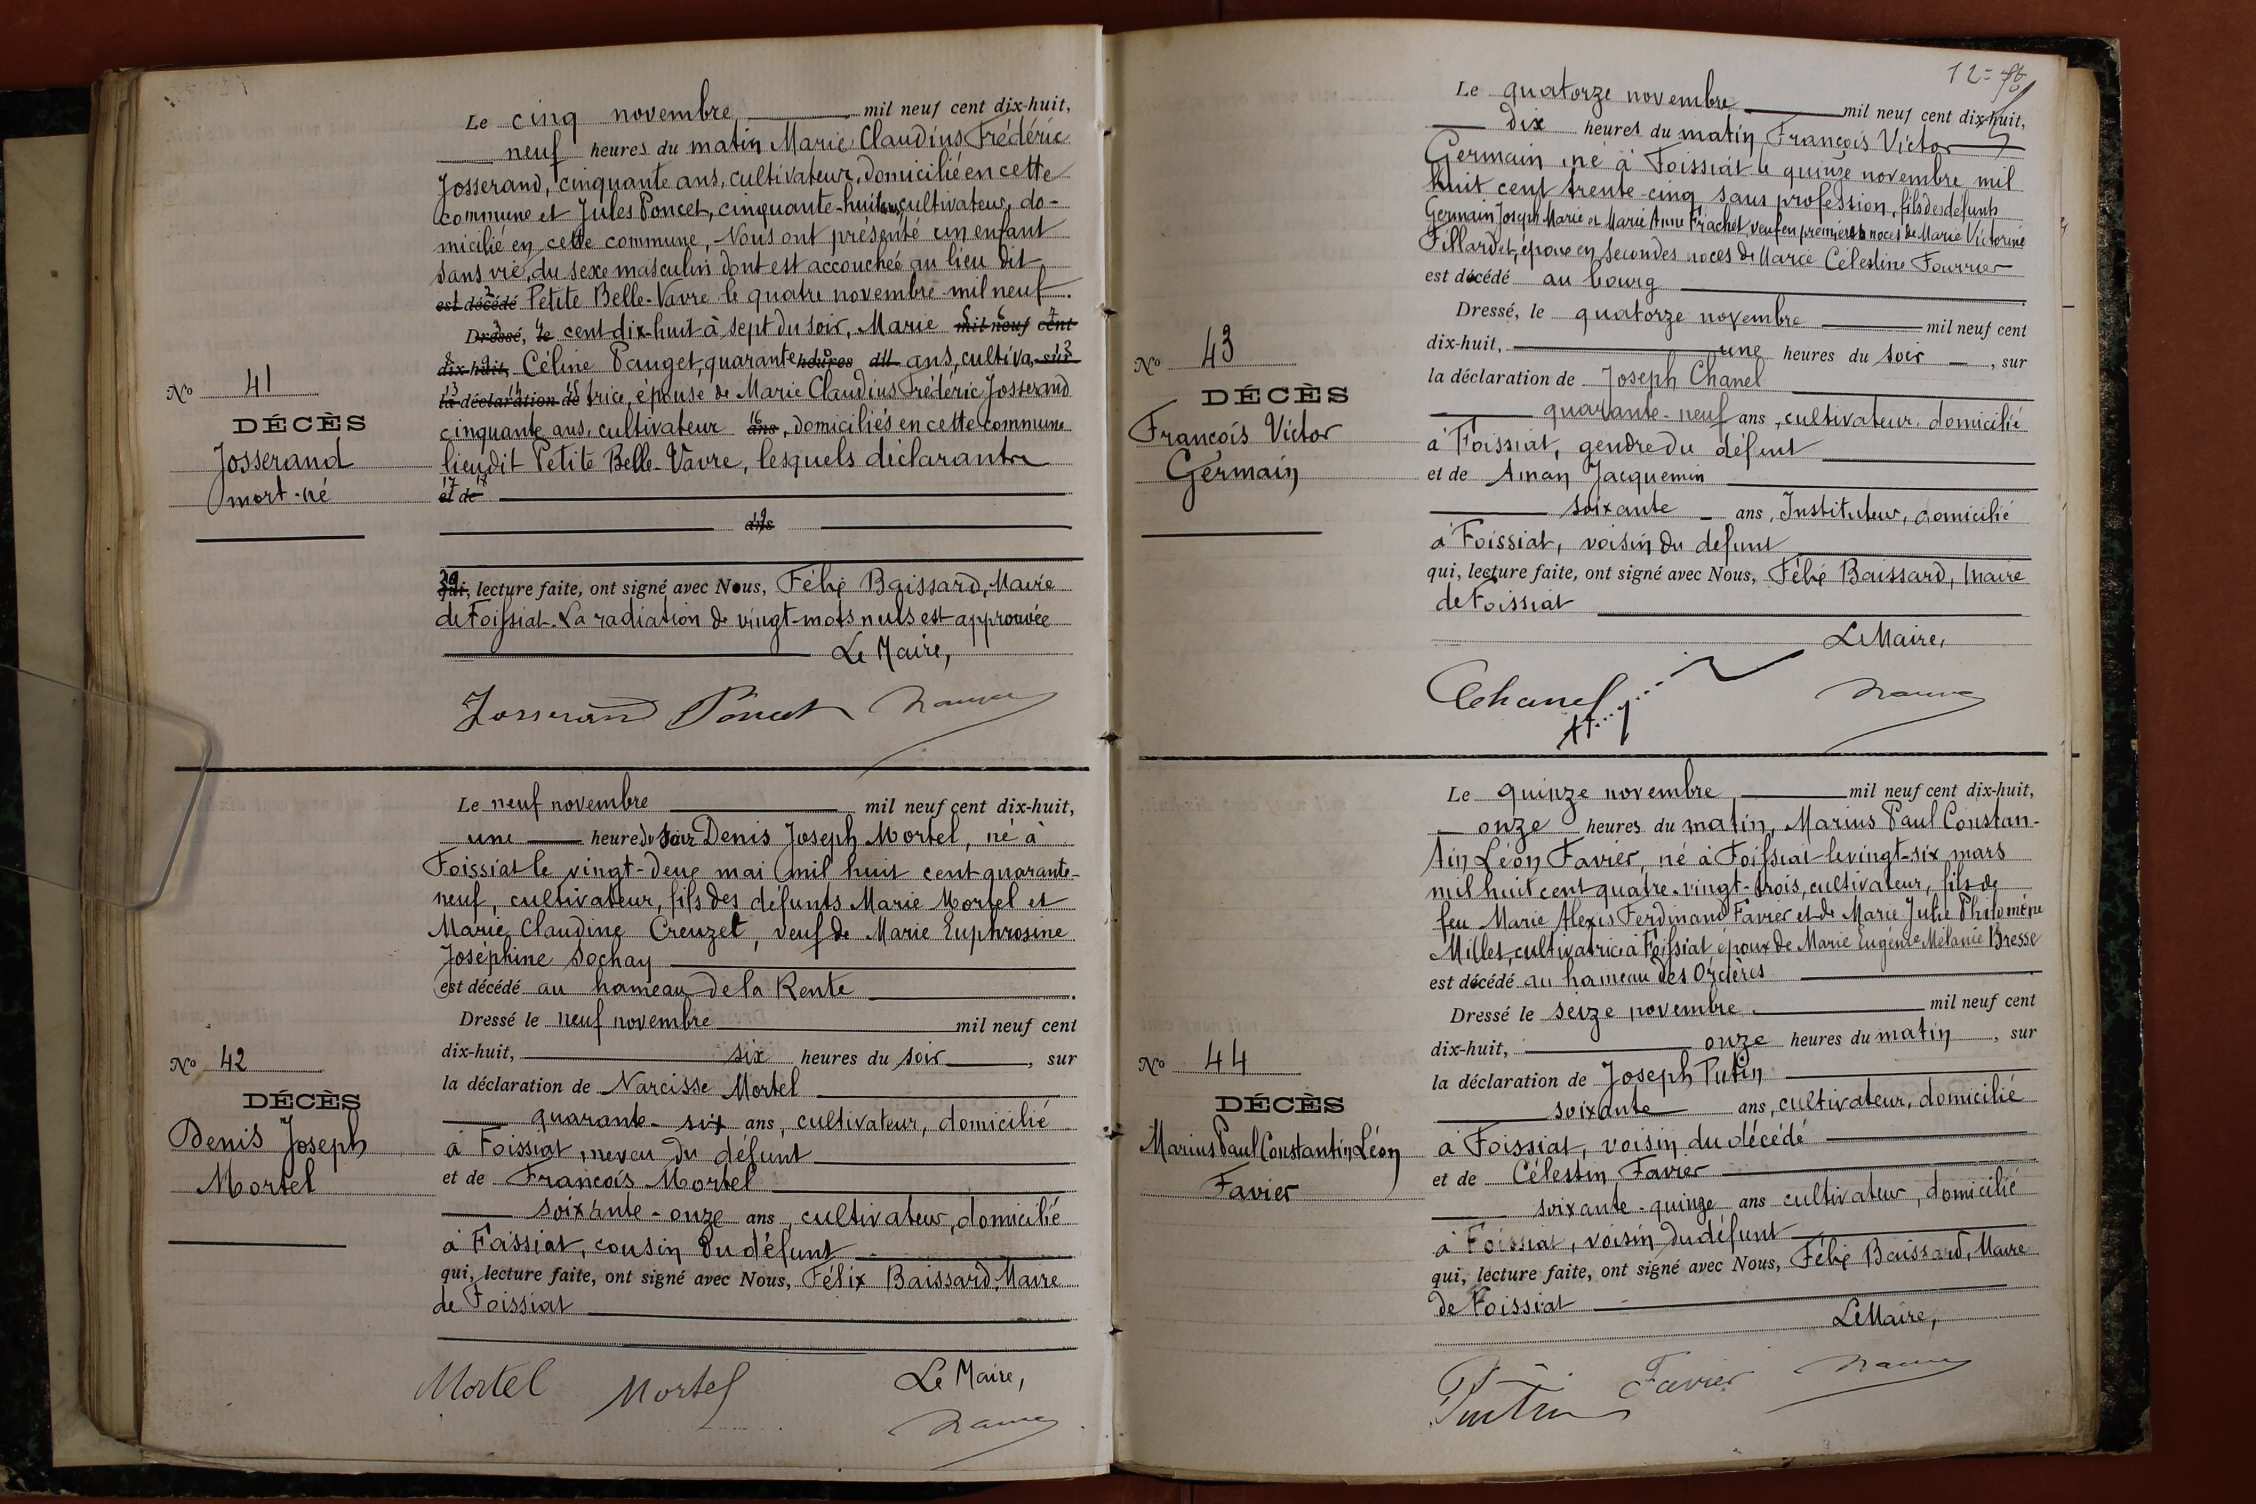 Le cinq novembre mil neuf cent dix-huit,
neuf heures du matin Marie Claudius Frédéric
Josserand, cinquante ans, cultivateur, domicilié en cette
commune et Jules Poncet, cinquante-huit ans, cultivateur, do-
micilié en cette commune, Nous ont présenté un enfant
sans vie, du sexe masculin dont est accouchée au lieu dit
est décédé Petite Belle-Vavre le quatre novembre mil neuf
Dressé, le cent dix-huit à sept du soir, Marie mil neuf cent
dix-huit, Céline Pauget, quarante heures du ans, cultiva, sur
la déclaration de trice, épouse de Marie Claudius Frédéric Josserand
cinquante ans, cultivateur ans, domiciliés en cette commune
lieu dit Petite Belle-Vavre, lesquels déclarants
et de
ans
qui, lecture faite, ont signé avec Nous, Félix Baissard, Maire
de Foissiat. La radiation de vingt-mots nuls est approuvée
Le Maire,
Josserand Poncet
No 41
DÉCÈS
Josserand
mort-né
Le neuf novembre mil neuf cent dix-huit,
une heure du soir Denis Joseph Mortel, né à
Foissiat le vingt-deux mai mil huit cent quarante-
neuf, cultivateur, fils des défunts Marie Mortel et
Marie Claudine Creuzet, veuf de Marie Euphrosine
Joséphine Sochay
est décédé au hameau de la Rente
Dressé le neuf novembre mil neuf cent
dix-huit, six heures du soir, sur
la déclaration de Narcisse Mortel
quarante-six ans, cultivateur, domicilié
à Foissiat, neveu du défunt
et de François Mortel
soixante-onze ans, cultivateur, domicilié
à Foissiat, cousin du défunt
qui, lecture faite, ont signé avec Nous, Félix Baissard, Maire
de Foissiat
Le Maire,
Mortel Mortel
No 42
DÉCÈS
Denis Joseph
Mortel
12
Le quatorze novembre mil neuf cent dix-huit,
dix heures du matin François Victor
Germain, né à Foissiat le quinze novembre mil
huit cent trente-cinq sans profession, fils des défunts
Germain Joseph Marie et Marie Anne Frachet, veuf en premières noces de Marie Victorine
Fillardet, époux en secondes noces de Marie Célestine Fourrier
est décédé au bourg
Dressé, le quatorze novembre mil neuf cent
dix-huit, une heures du soir, sur
la déclaration de Joseph Chanel
quarante-neuf ans, cultivateur, domicilié
à Foissiat, gendre du défunt
et de Aman Jacquemin
soixante ans, Instituteur, domicilié
à Foissiat, voisin du défunt
qui, lecture faite, ont signé avec Nous, Félix Baissard, Maire
de Foissiat
Le Maire,
Chanel
No 43
DÉCÈS
François Victor
Germain
Le quinze novembre mil neuf cent dix-huit,
onze heures du matin, Marius Paul Constan-
tin Léon Favier, né à Foissiat le vingt-six mars
mil huit cent quatre-vingt-trois, cultivateur, fils de
feu Marie Alexis Ferdinand Favier et de Marie Julie Philomène
Milles, cultivatrice à Foissiat époux de Marie Eugénie Mélanie Bresse
est décédé au hameau des Orcières
Dressé le seize novembre mil neuf cent
dix-huit, onze heures du matin, sur
la déclaration de Joseph Putin
soixante ans, cultivateur, domicilié
à Foissiat, voisin du décédé
et de Célestin Favier
soixante-quinze ans cultivateur, domicilié
à Foissiat, voisin du défunt
qui, lecture faite, ont signé avec Nous, Félix Baissard, Maire
de Foissiat
Le Maire,
Putin Favier
No 44
DÉCÈS
Marius Paul Constantin Léon
Favier